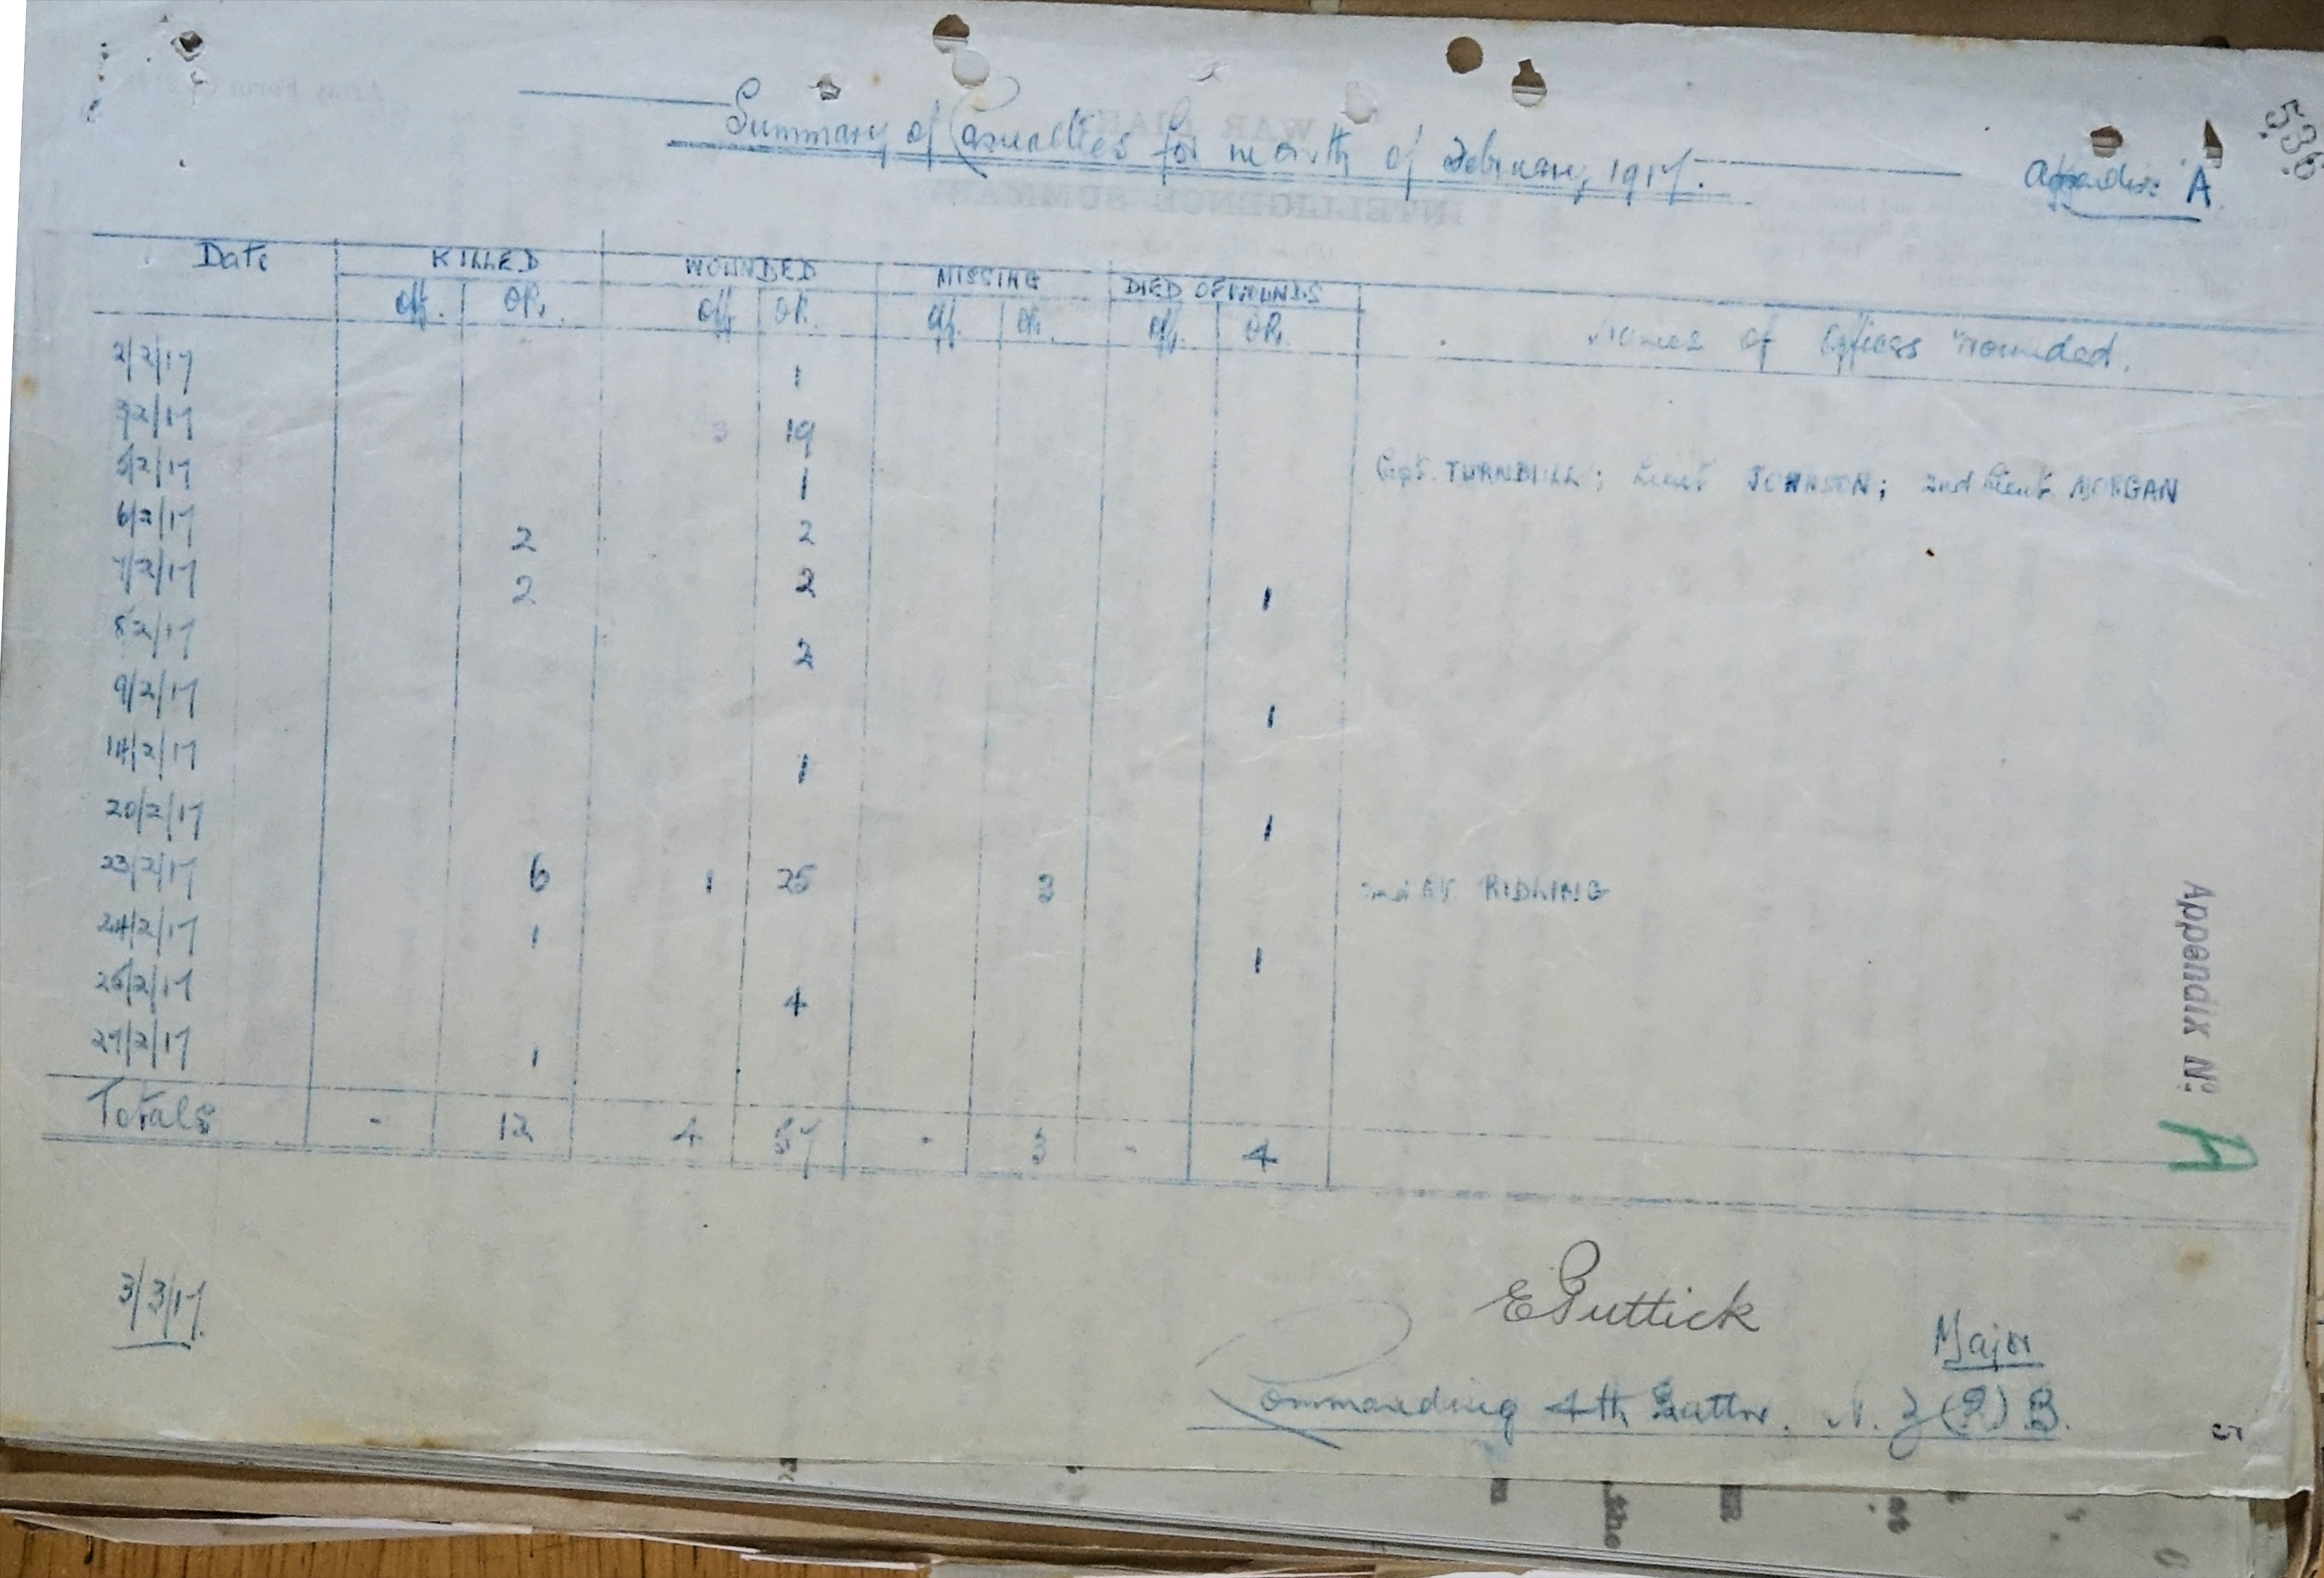 536
Summary of Casualties for month of February, 1917.
Appendix "A"
Date KILLED WOUNDED MISSING DIED OF WOUNDS Names of Officers Wounded.
Off. OR. Off OR. Off. OR. Off. OR.
2/2/17 1
3/2/17 3 19 Capt. TURNBULL; Lieut JOHNSON; 2nd Lieut MORGAN
5/2/17 1
6/2/17 2 2
7/2/17 2 2 1
8/2/17 2
9/2/17 1
14/2/17 1
20/2/17 1
23/2/17 6 1 25 3 2nd Lt. RIDLING
24/2/17 1 1
25/2/17 4
27/2/17 1
Totals - 12 4 57 - 3 - 4
Appendix No. A
3/3/17.
E Puttick
Major
Commanding 4th Battn. N. Z (R) B.
5